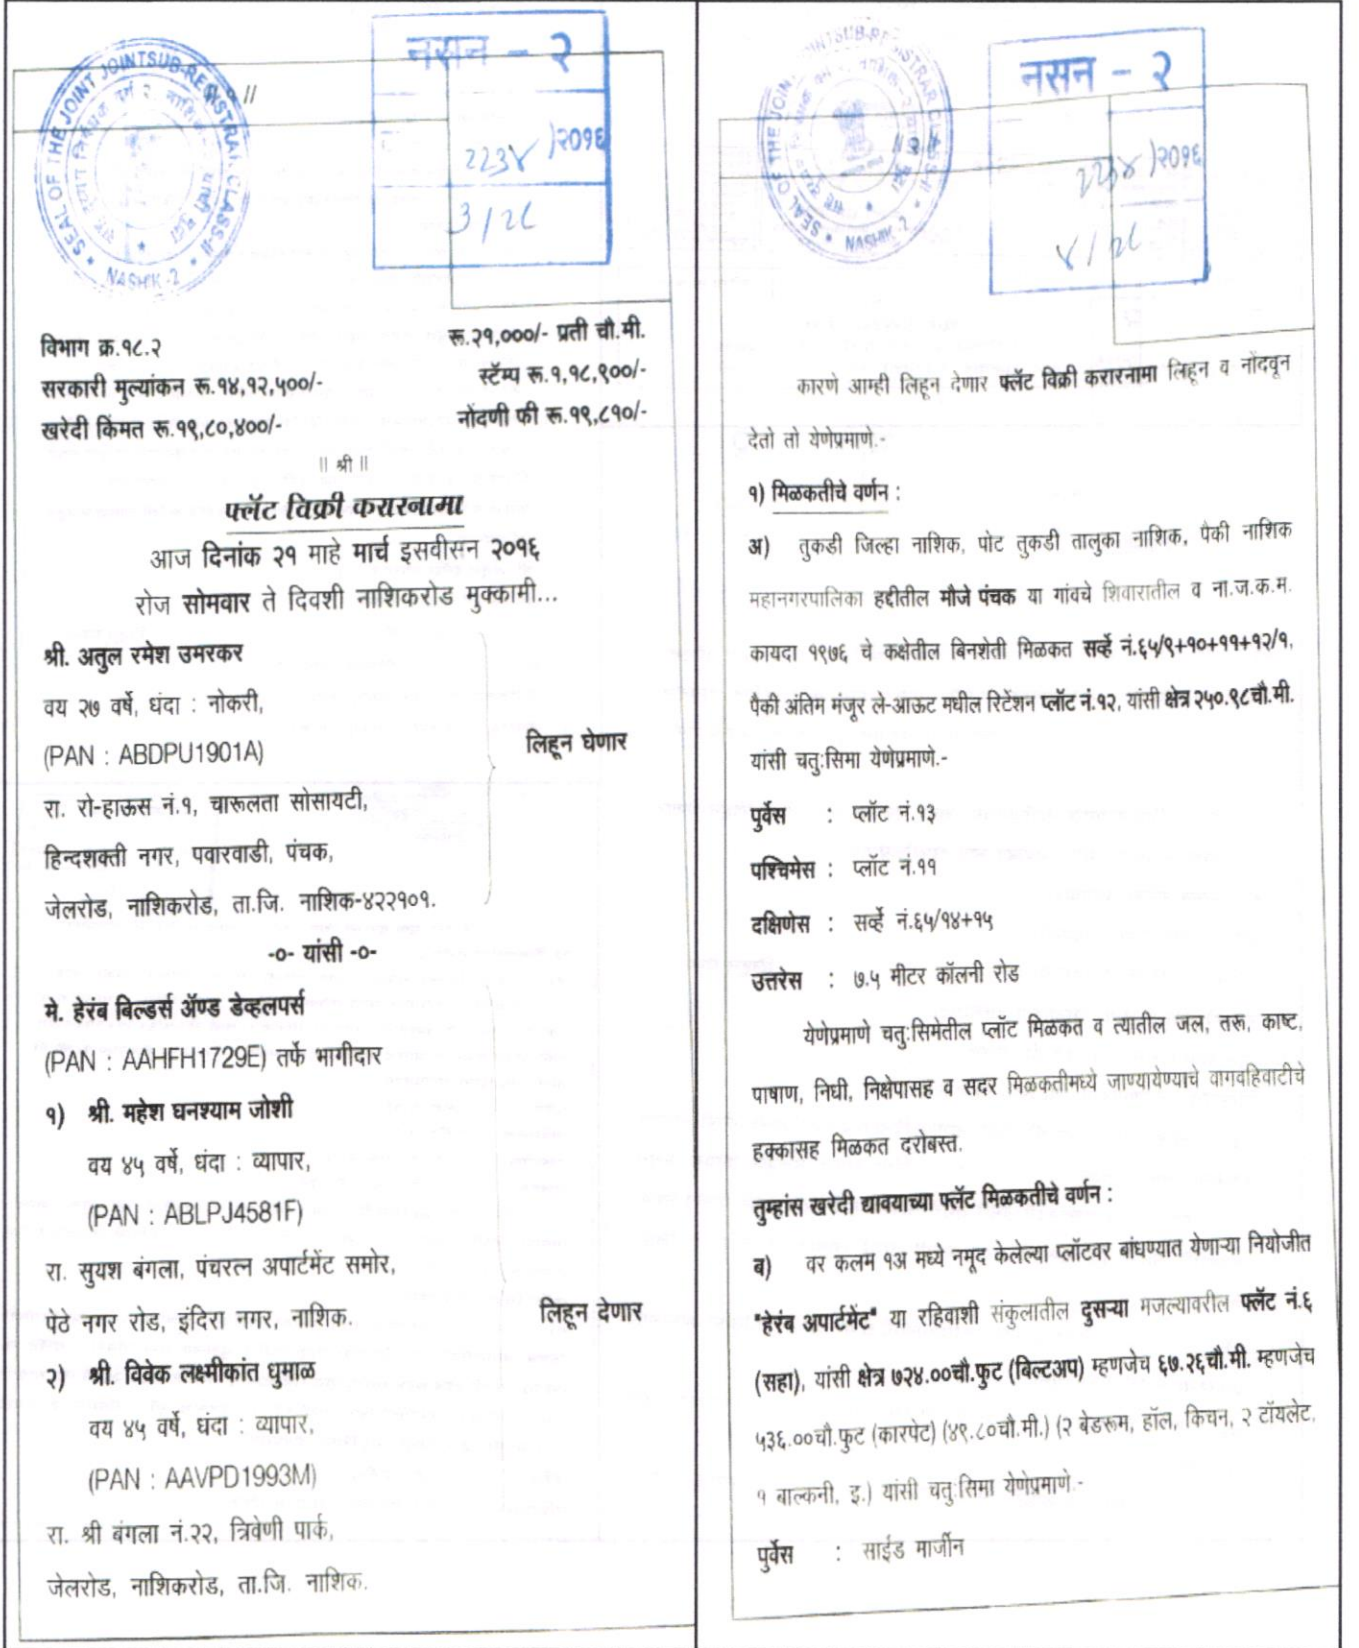 नसन - २
२२३४/२०१६
३/२८
SEAL OF THE JOINT JOINTSUB-REGISTRAR CLASS-II
NASHIK-2
विभाग क्र.१८.२
रू.२१,०००/- प्रती चौ.मी.
सरकारी मुल्यांकन रू.१४,१२,५००/-
स्टॅम्प रू.१,१८,९००/-
खरेदी किंमत रू.१९,८०,४००/-
नोंदणी फी रू.१९,८१०/-
॥ श्री ॥
फ्लॅट विक्री करारनामा
आज दिनांक २१ माहे मार्च इसवीसन २०१६
रोज सोमवार ते दिवशी नाशिकरोड मुक्कामी...
श्री. अतुल रमेश उमरकर
वय २७ वर्षे, धंदा : नोकरी,
(PAN : ABDPU1901A)
लिहून घेणार
रा. रो-हाऊस नं.१, चारूलता सोसायटी,
हिन्दशक्ती नगर, पवारवाडी, पंचक,
जेलरोड, नाशिकरोड, ता.जि. नाशिक-४२२१०१.
-०- यांसी -०-
मे. हेरंब बिल्डर्स ॲण्ड डेव्हलपर्स
(PAN : AAHFH1729E) तर्फे भागीदार
१) श्री. महेश घनश्याम जोशी
वय ४५ वर्षे, धंदा : व्यापार,
(PAN : ABLPJ4581F)
रा. सुयश बंगला, पंचरत्न अपार्टमेंट समोर,
पेठे नगर रोड, इंदिरा नगर, नाशिक.
लिहून देणार
२) श्री. विवेक लक्ष्मीकांत धुमाळ
वय ४५ वर्षे, धंदा : व्यापार,
(PAN : AAVPD1993M)
रा. श्री बंगला नं.२२, त्रिवेणी पार्क,
जेलरोड, नाशिकरोड, ता.जि. नाशिक.
नसन - २
२२३४/२०१६
४/२८
NASHIK-2
कारणे आम्ही लिहून देणार फ्लॅट विक्री करारनामा लिहून व नोंदवून
देतो तो येणेप्रमाणे.-
१) मिळकतीचे वर्णन :
अ) तुकडी जिल्हा नाशिक, पोट तुकडी तालुका नाशिक, पैकी नाशिक
महानगरपालिका हद्दीतील मौजे पंचक या गांवचे शिवारातील व ना.ज.क.म.
कायदा १९७६ चे कक्षेतील बिनशेती मिळकत सर्व्हे नं.६५/९+१०+११+१२/१,
पैकी अंतिम मंजूर ले-आऊट मधील रिटेंशन प्लॉट नं.१२, यांसी क्षेत्र २५०.९८चौ.मी.
यांसी चतु:सिमा येणेप्रमाणे.-
पुर्वेस : प्लॉट नं.१३
पश्चिमेस : प्लॉट नं.११
दक्षिणेस : सर्व्हे नं.६५/१४+१५
उत्तरेस : ७.५ मीटर कॉलनी रोड
येणेप्रमाणे चतु:सिमेतील प्लॉट मिळकत व त्यातील जल, तरू, काष्ट,
पाषाण, निधी, निक्षेपासह व सदर मिळकतीमध्ये जाण्यायेण्याचे वागवहिवाटीचे
हक्कासह मिळकत दरोबस्त.
तुम्हांस खरेदी द्यावयाच्या फ्लॅट मिळकतीचे वर्णन :
ब) वर कलम १अ मध्ये नमूद केलेल्या प्लॉटवर बांधण्यात येणाऱ्या नियोजीत
"हेरंब अपार्टमेंट" या रहिवाशी संकुलातील दुसऱ्या मजल्यावरील फ्लॅट नं.६
(सहा), यांसी क्षेत्र ७२४.००चौ.फुट (बिल्टअप) म्हणजेच ६७.२६चौ.मी. म्हणजेच
५३६.००चौ.फुट (कारपेट) (४९.८०चौ.मी.) (२ बेडरूम, हॉल, किचन, २ टॉयलेट,
१ बाल्कनी, इ.) यांसी चतु:सिमा येणेप्रमाणे.-
पुर्वेस : साईड मार्जीन